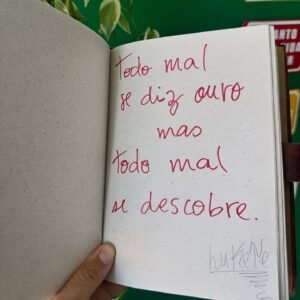 todo mal
se diz ouro
mas
todo mal
se descobre.